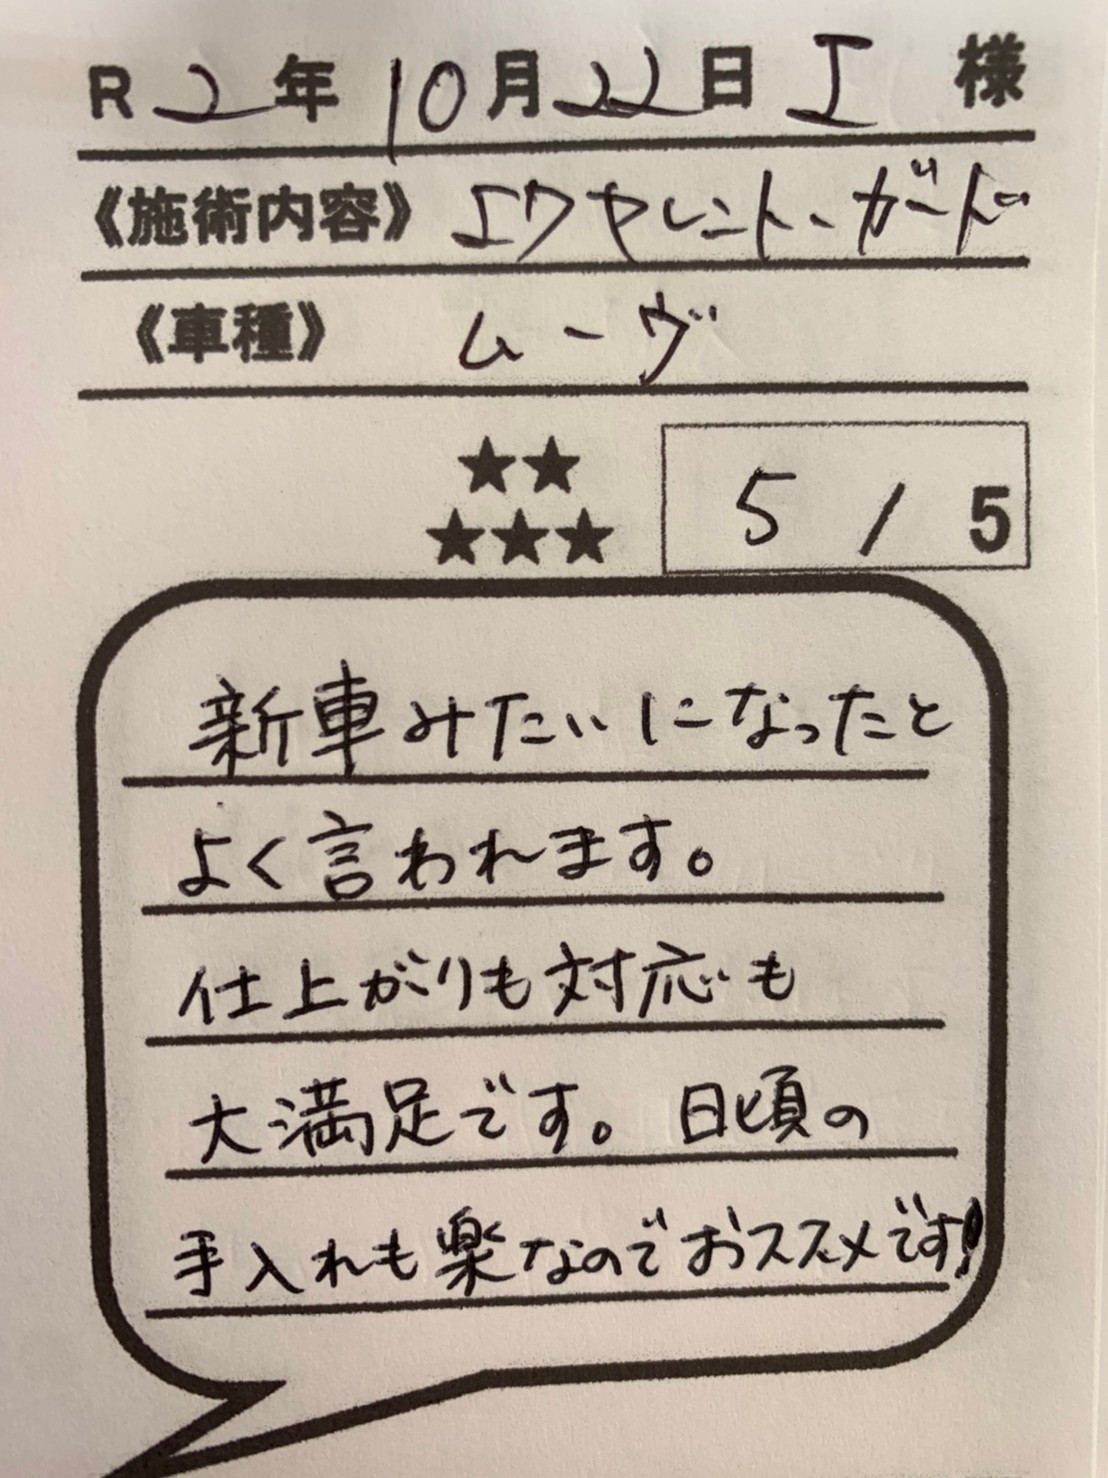 R2年10月22日 I 様
《施術内容》エクセレント・ガード
《車種》 ムーヴ
★★
★★★ 5/5
新車みたいになったと
よく言われます。
仕上がりも対応も
大満足です。日頃の
手入れも楽なのでおススメです!